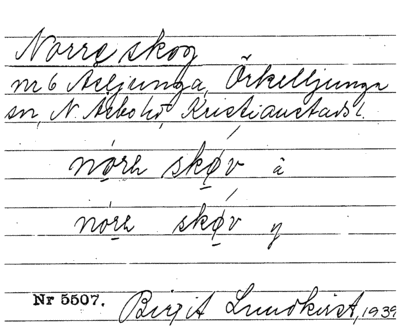 Norre skog
nr 6 Åsljunga, Örkelljunga
sn, N. Åsbo hd, Kristianstads l.
nọrə skøv å
nọrə skøv y
Nr 5507. Birgit Lundkvist, 1939